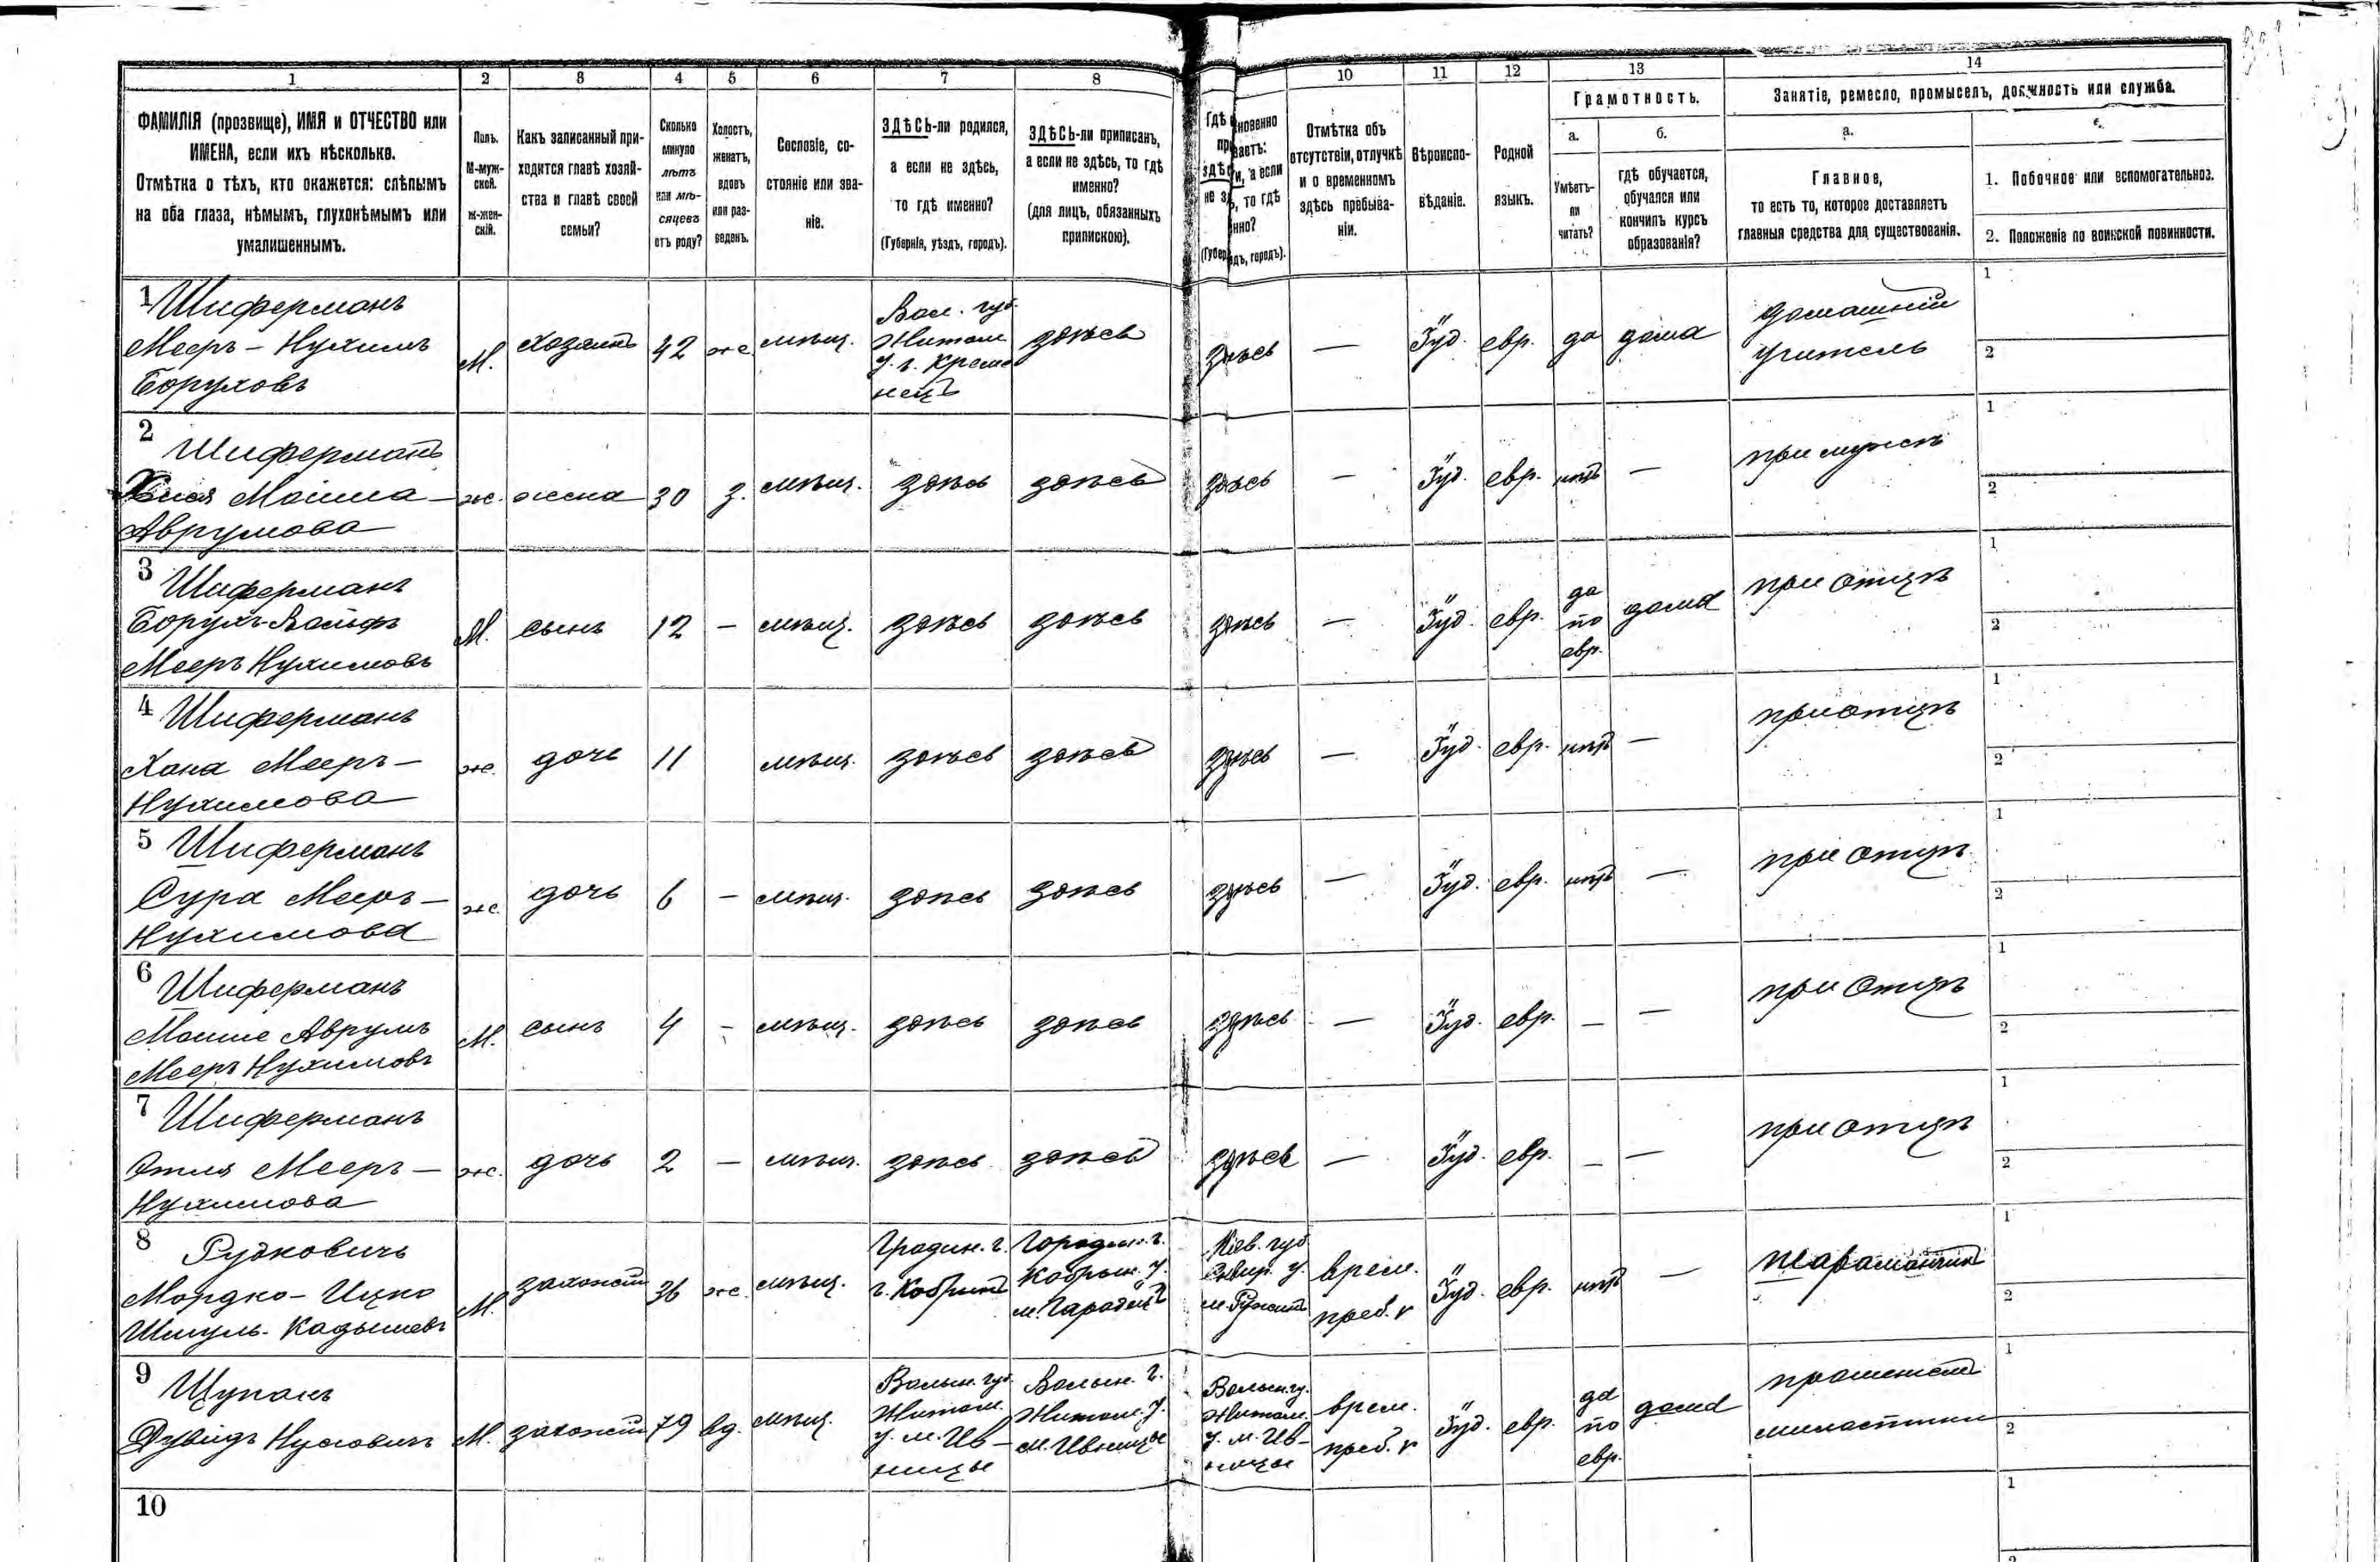 1 2 3 4 5 6 7 8 10 11 12 13 14
ФАМИЛІЯ (прозвище), ИМЯ и ОТЧЕСТВО или
ИМЕНА, если ихъ нѣсколько.
Отмѣтка о тѣхъ, кто окажется: слѣпымъ
на оба глаза, нѣмымъ, глухонѣмымъ или
умалишеннымъ.
Полъ.
М-муж-
ской.
Ж-жен-
скій.
Какъ записанный при-
ходится главѣ хозяй-
ства и главѣ своей
семьи?
Сколько
минуло
лѣтъ
или мѣ-
сяцевъ
отъ роду?
Холостъ,
женатъ,
вдовъ
или раз-
веденъ.
Сословіе, со-
стояніе или зва-
ніе.
ЗДѢСЬ-ли родился,
а если не здѣсь,
то гдѣ именно?
(Губернія, уѣздъ, городъ).
ЗДѢСЬ-ли приписанъ,
а если не здѣсь, то гдѣ
именно?
(для лицъ, обязанныхъ
припискою).
Гдѣ новенно
пр ваетъ:
здѣс и, а если
не з ь, то гдѣ
нно?
(Губер дъ, городъ).
Отмѣтка объ
отсутствіи, отлучкѣ
и о временномъ
здѣсь пребыва-
ніи.
Вѣроиспо-
вѣданіе.
Родной
языкъ.
Грамотность.
а.
Умѣетъ-
ли
читать?
б.
гдѣ обучается,
обучался или
кончилъ курсъ
образованія?
Занятіе, ремесло, промыселъ, должность или служба.
а.
Главное,
то есть то, которое доставляетъ
главныя средства для существованія.
1. Побочное или вспомогательное.
2. Положеніе по воинской повинности.
1 Шиферманъ
Мееръ - Нухимъ
Боруховъ
М.
хозяинъ
42
же
мѣщ.
Вол. губ.
Житом.
у. г. Креме
нецъ
здѣсь
здѣсь
—
Іуд.
евр.
да
дома
домашній
учитель
1
2
2 Шиферманъ
Мошка-
Аврумова
же.
жена
30
з.
мѣщ.
здѣсь
здѣсь
здѣсь
—
Іуд.
евр.
нѣтъ
—
при мужѣ
1
2
3 Шиферманъ
Борухъ-
Мееръ Нухимовъ
М.
сынъ
12
—
мѣщ.
здѣсь
здѣсь
здѣсь
—
Іуд.
евр.
да
по
евр.
дома
при отцѣ
1
2
4 Шиферманъ
Хана Мееръ-
Нухимова
же.
дочь
11
мѣщ.
здѣсь
здѣсь
здѣсь
—
Іуд.
евр.
нѣтъ
—
при отцѣ
1
2
5 Шиферманъ
Сура Мееръ-
Нухимова
же.
дочь
6
—
мѣщ.
здѣсь
здѣсь
здѣсь
—
Іуд.
евр.
нѣтъ
—
при отцѣ
1
2
6 Шиферманъ
Мошке Аврумъ
Мееръ Нухимовъ
М.
сынъ
4
—
мѣщ.
здѣсь
здѣсь
здѣсь
—
Іуд.
евр.
—
—
при отцѣ
1
2
7 Шиферманъ
Этля Мееръ-
Нухимова
же.
дочь
2
—
мѣщ.
здѣсь
здѣсь
здѣсь
—
Іуд.
евр.
—
—
при отцѣ
1
2
8 Рудковичъ
Мордко-Ицко
Шмуль-Кадышевъ
М.
36
же
мѣщ.
Градин. г.
г. Кобринъ
Городин. г.
Кобрын. у.
м. Гарадец
Кіев. губ.
у.
м. Ружинъ
врем.
преб.
Іуд.
евр.
нѣтъ
—
шарманщикъ
1
2
9 Щупакъ
Дувидъ Нусовичъ
М.
79
вд.
мѣщ.
Волын. губ.
Житом.
у. м. Ив-
ницы
Волын. г.
Житом. у.
м. Ивницы
Волын. гу.
Житом.
у. м. Ив-
ницы
врем.
преб.
Іуд.
евр.
да
по
евр.
дома
прошеніем
милостыни
1
2
10
1